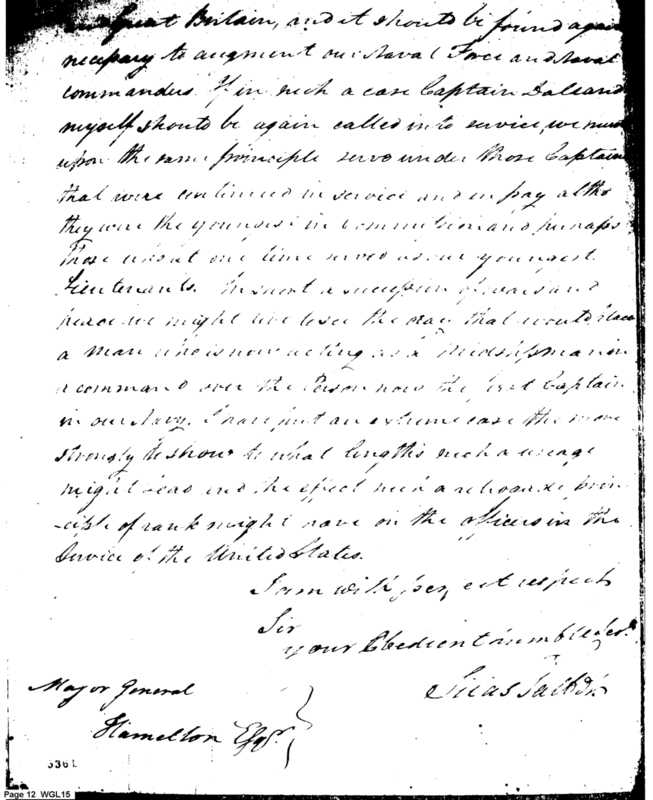 Great Britain, and it should be found again
necessary to augment our Naval Force and Naval
commanders. If in such a case Captain Dale and
myself should be again called into service, we must
upon the same principle serve under those Captains
that were continued in service and in pay altho
they were the youngest in commission and perhaps
those who at one time served as our youngest
Lieutenants. In short a succession of wars and
peace we might live to see the day that would place
a man who is now acting as a Midshipman in
a command over the Person now the first Captain
in our Navy. I have put an extreme case the more
strongly to show to what lengths such a usage
might lead and the effect such a retrograde prin
-ciple of rank might have on the officers in the
Service of the United States.
I am with perfect respect
Sir
your Obedient humble
Silas Talbot
Major General
Hamelton Esqr.
5361
Page 12 WGL15